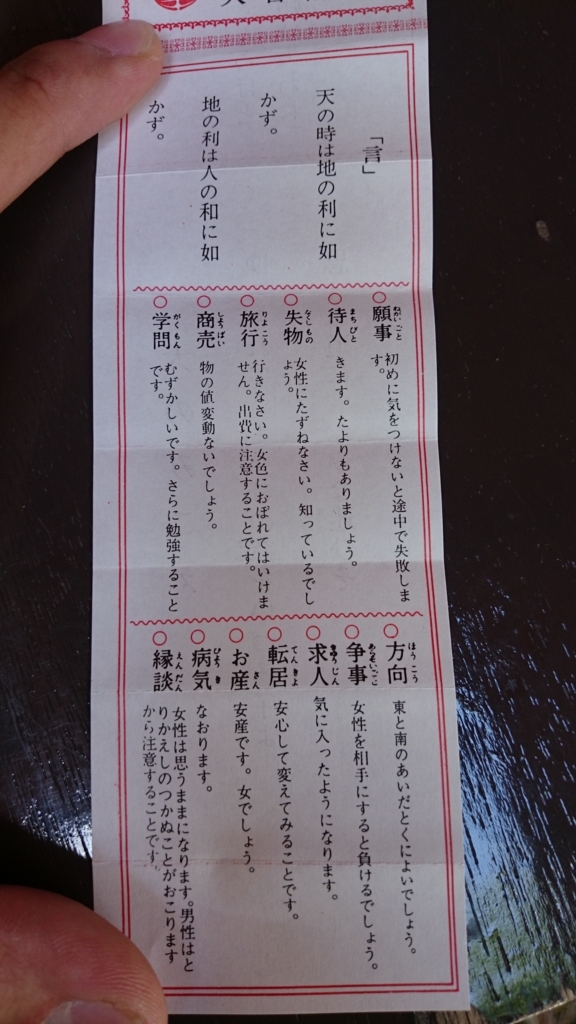 「言」
天の時は地の利に如
かず。
地の利は人の和に如
かず。
願事 ねがいごと
初めに気をつけないと途中で失敗しま
す。
待人 まちびと
きます。たよりもありましょう。
失物 なくしもの
女性にたずねなさい。知っているでし
ょう。
旅行 りょこう
行きなさい。女色におぼれてはいけま
せん。出費に注意することです。
商売 しょうばい
物の値変動ないでしょう。
学問 がくもん
むずかしいです。さらに勉強すること
です。
方向 ほうこう
東と南のあいだとくによいでしょう。
争事 あらそいごと
女性を相手にすると負けるでしょう。
求人 きゅうじん
気に入ったようになります。
転居 てんきょ
安心して変えてみることです。
お産 さん
安産です。女でしょう。
病気 びょうき
なおります。
縁談 えんだん
女性は思うままになります。男性はと
りかえしのつかぬことがおこります
から注意することです。